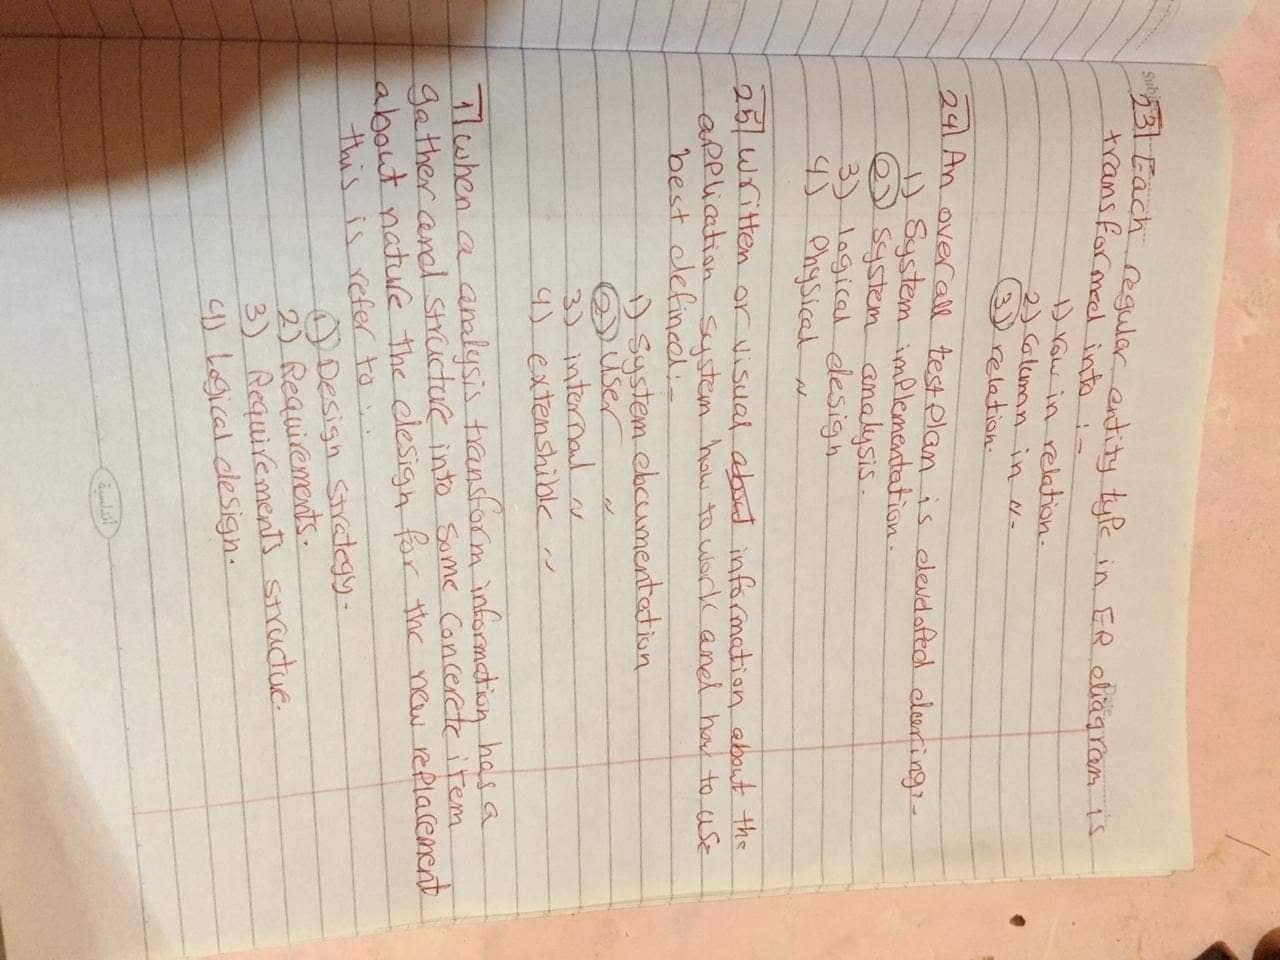 23| Each regular entity type in ER diagram is
transformed into :-
1) row in relation.
2) column in " -
3) relation.
24| An over all test plan is develofed duering:-
1) System implementation.
2) system analysis.
3) Logical design
4) Physical "
25| written or visual about information about the
application system how to work and how to use
best defined:-
1) System documentation
2) User "
3) internal "
4) extenshible "
1| when a analysis transform information has a
gather and structure into some concerete item
about nature the design for the new replacement
this is refer to :.
1) Design strategy.
2) Requirements.
3) Requirements structure.
4) Logical design.